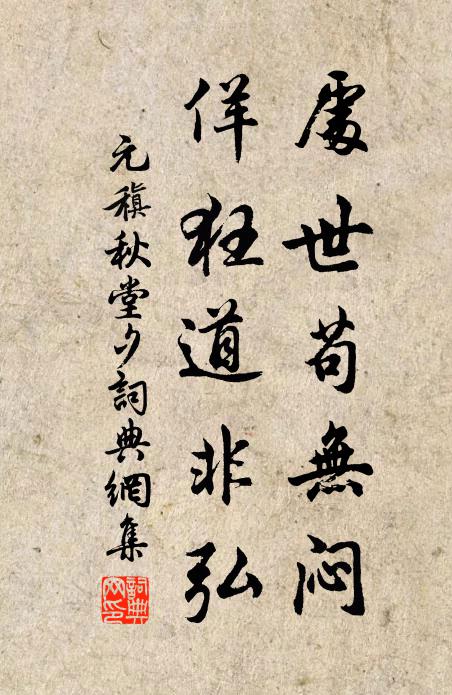 處世苟無悶
佯狂道非弘
元稹秋堂夕詞典網集
詞典網印